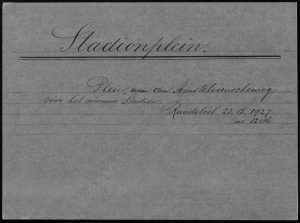 Stadionplein.
Plein, aan den Amstelveenscheweg
vóór het nieuwe Stadion.
Raadsbesl. 23.12.1927.
nr. 1256.